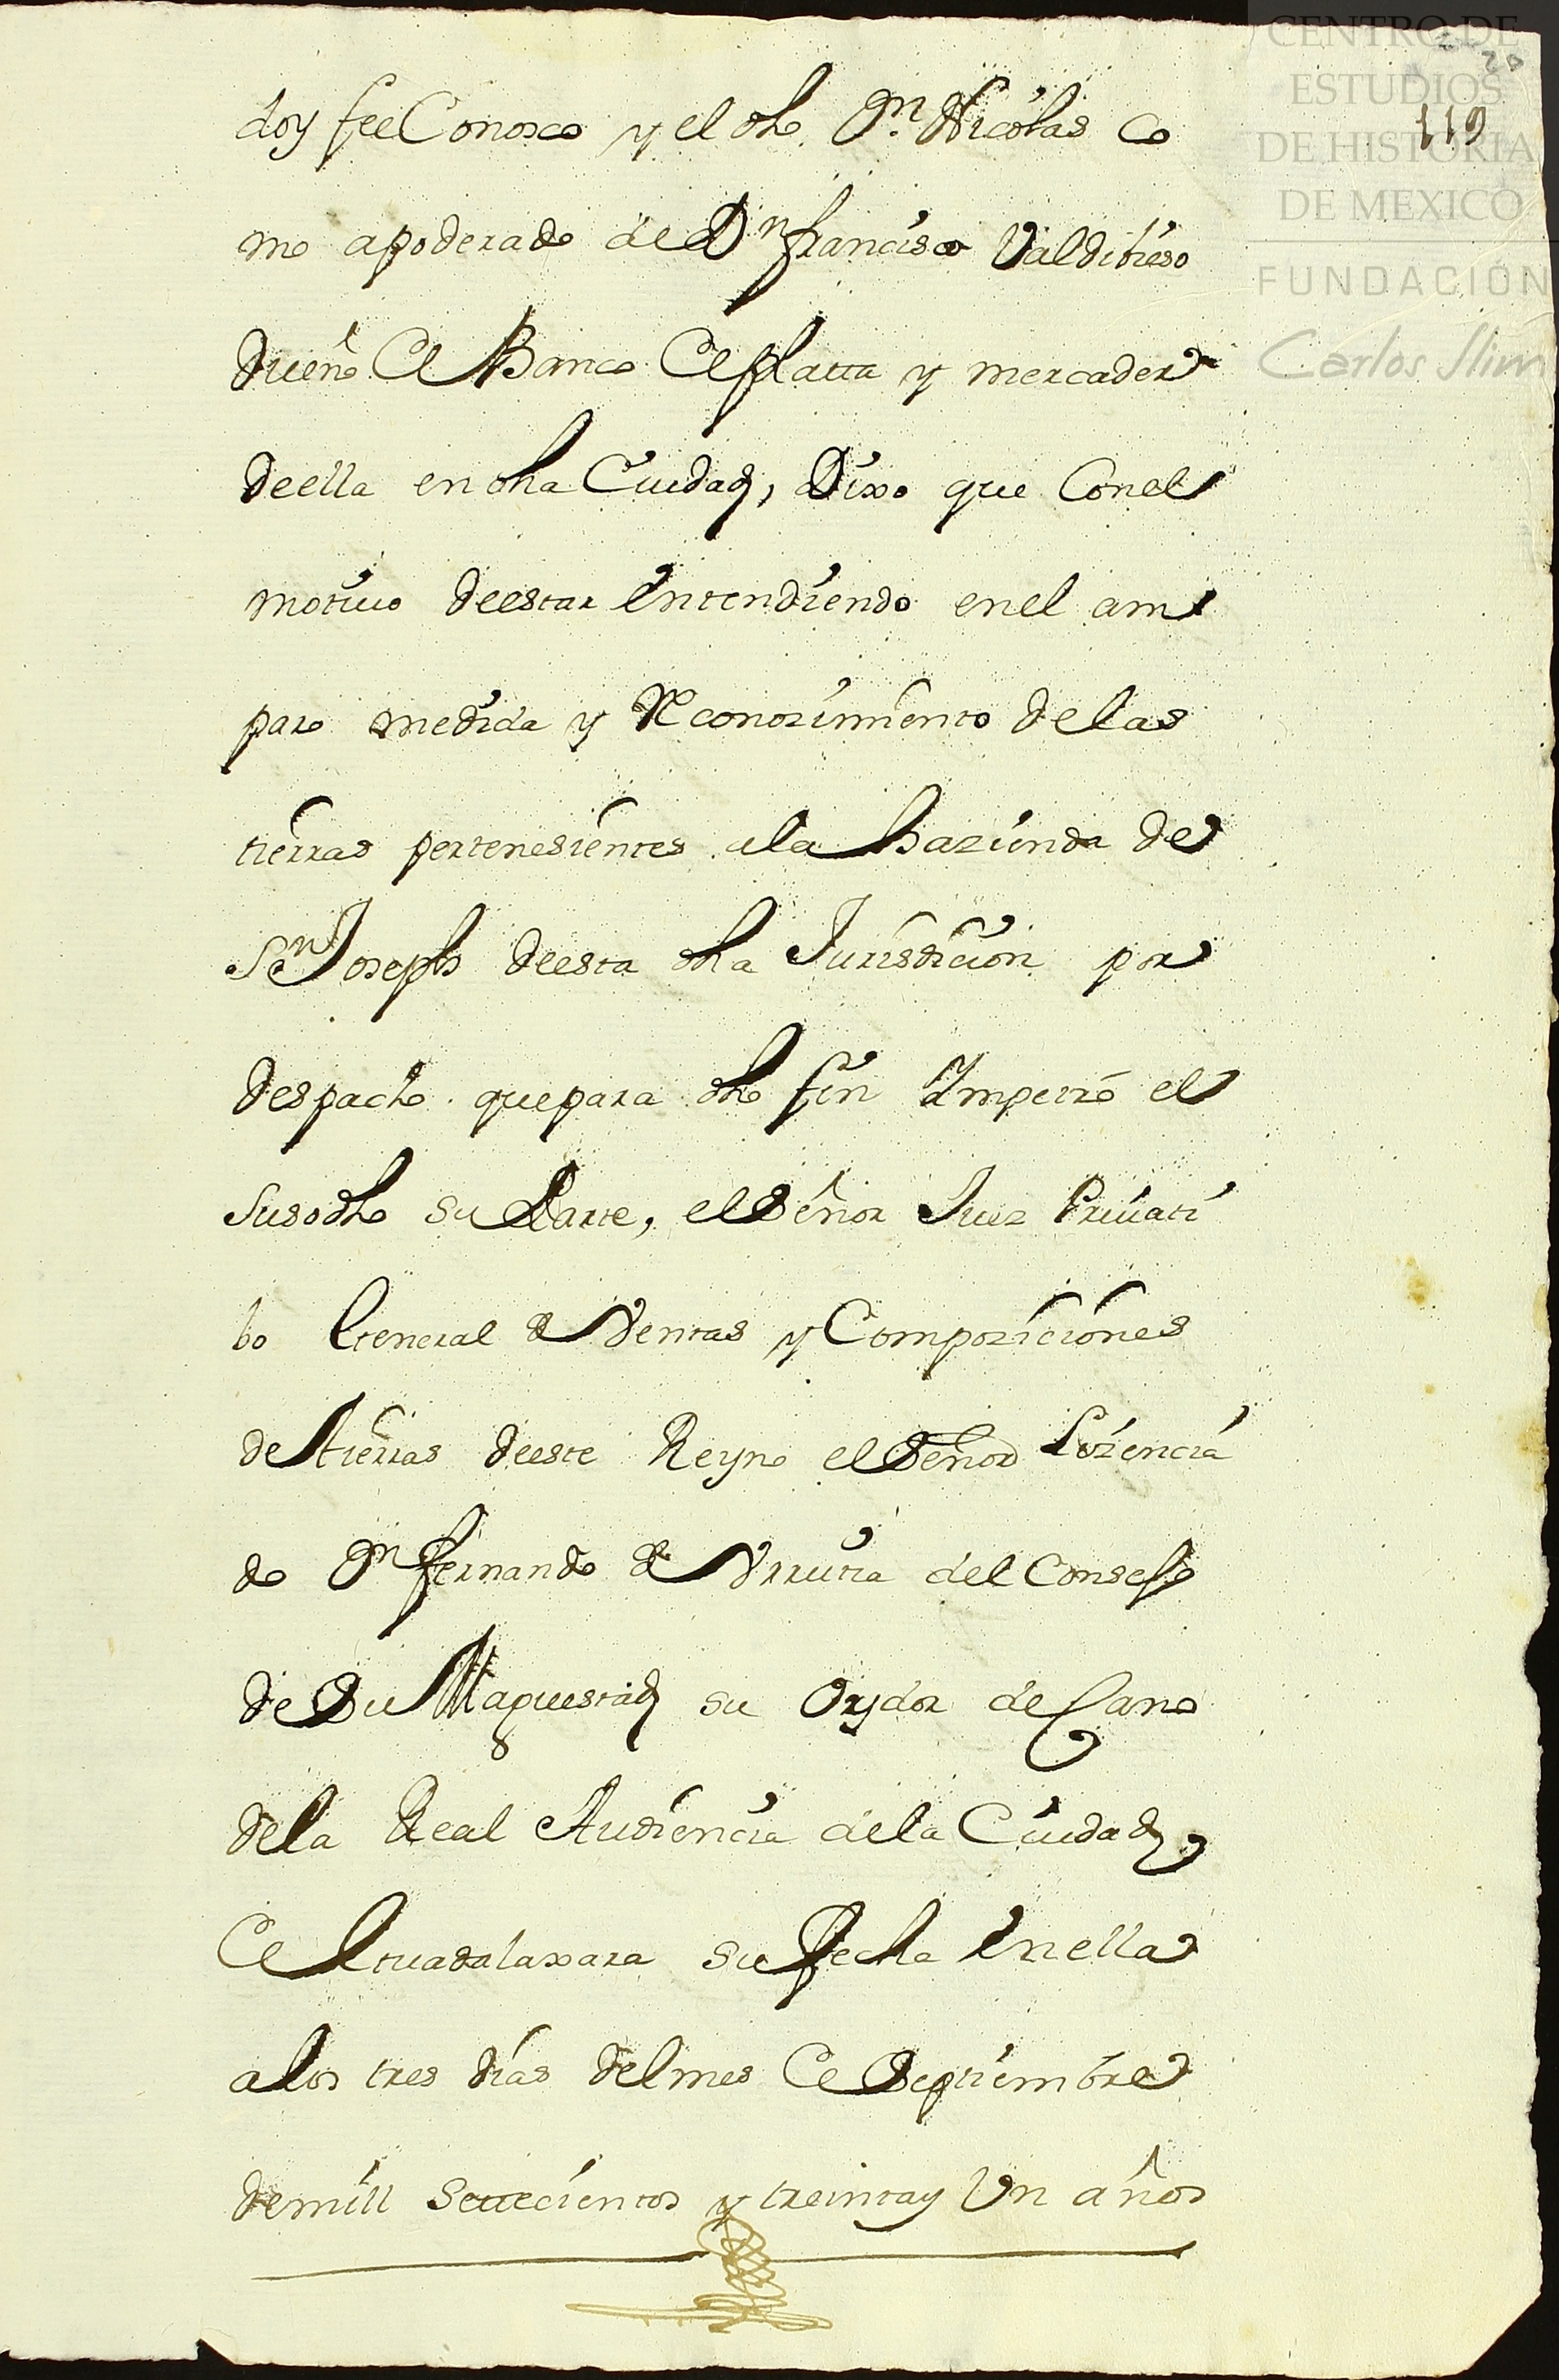 CENTRO DE
ESTUDIOS
DE HISTORIA
DE MEXICO
FUNDACIÓN
Carlos Slim
20
119
doy fee Conosco y el dho Dn. Nicolas Co
mo apoderado de Dn francisco Valdibieso
dueño de Banco de platta y mercader
de ella en dha Ciudad, Dixo que Con el
motivo de estar Entendiendo en el am
paro medida y Reconozimiento de las
tierras pertenesientes a la hazienda de
Sn Joseph de esta dha Jurisdicion por
despacho que para dho fin Impetró el
Susodho su Parte, el Señor Juez Privati
bo General de Ventas y Composiciones
de tierras de este Reyno el Señor Lizencia
do Dn fernando de Urrutia del Consejo
de Su Maguestad su Oydor decano
de la Real Audiencia de la Ciudad
de Guadalaxara su fecha En ella
a los tres dias del mes de Septiembre
de mill settecientos y treinta y Un años